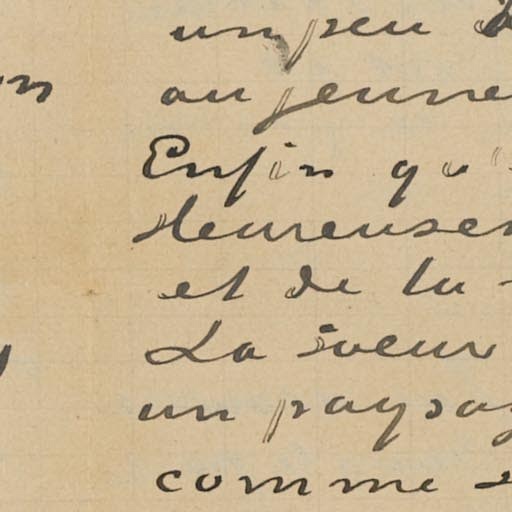 un peu
au jeune
Enfin qu'
Heureusem
et de la
La soeur
un paysag
comme